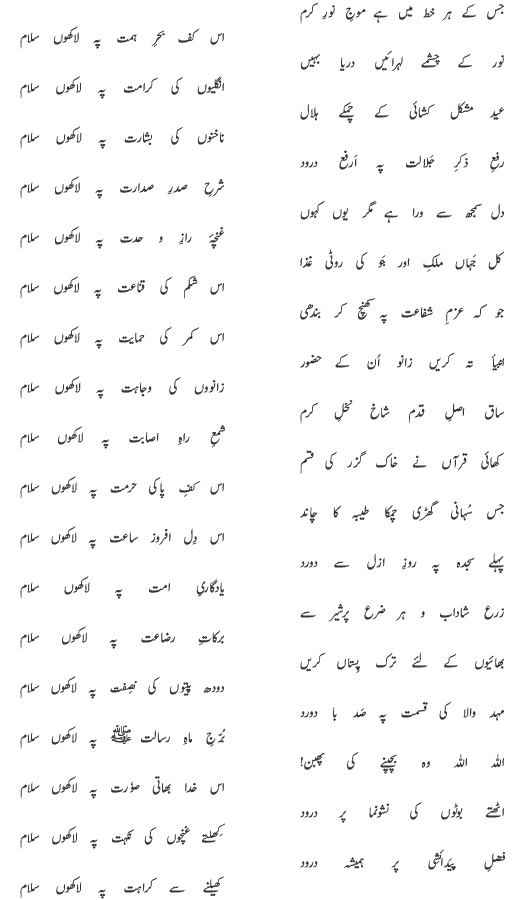 جس کے ہر خط میں ہے موجِ نورِ کرم
اس کف بحرِ ہمت پہ لاکھوں سلام
نور کے چشمے لہرائیں دریا بہیں
انگلیوں کی کرامت پہ لاکھوں سلام
عید مشکل کشائی کے چمکے ہلال
ناخنوں کی بشارت پہ لاکھوں سلام
رفعِ ذکرِ جلالت پہ اَرفع درود
شرحِ صدرِ صدارت پہ لاکھوں سلام
دل سمجھ سے ورا ہے مگر یوں کہوں
غنچۂ رازِ و حدت پہ لاکھوں سلام
کل جَہاں ملکِ اور جَو کی روٹی غذا
اس شکم کی قناعت پہ لاکھوں سلام
جو کہ عزمِ شفاعت پہ کھنچ کر بندھی
اس کمر کی حمایت پہ لاکھوں سلام
انبیأ تہ کریں زانو اُن کے حضور
زانووں کی وجاہت پہ لاکھوں سلام
ساق اصلِ قدم شاخ نخلِ کرم
شمعِ راہِ اصابت پہ لاکھوں سلام
کھائی قرآں نے خاک گزر کی قسم
اس کفِ پاکی حرمت پہ لاکھوں سلام
جس سُہانی گھڑی چمکا طیبہ کا چاند
اس دِل افروز ساعت پہ لاکھوں سلام
پہلے سجدہ پہ روزِ ازل سے دورد
یادگاریِ امت پہ لاکھوں سلام
زرع شاداب و ہر ضرع پرشیر سے
برکاتِ رضاعت پہ لاکھوں سلام
بھائیوں کے لئے ترک پِستاں کریں
دودھ پیتوں کی نصِفت پہ لاکھوں سلام
مہد والا کی قسمت پہ صَد ہا دورد
بُرجِ ماہِ رسالت ﷺ پہ لاکھوں سلام
اللہ اللہ وہ بچپنے کی پھبن!
اس خدا بھاتی صوُرت پہ لاکھوں سلام
اٹھتے بوٹوں کی نشونما پر درود
کِھلتے غنچوں کی نکہت پہ لاکھوں سلام
فضلِ پیَدائشی پر ہمیشہ درود
کھیلنے سے کراہت پہ لاکھوں سلام